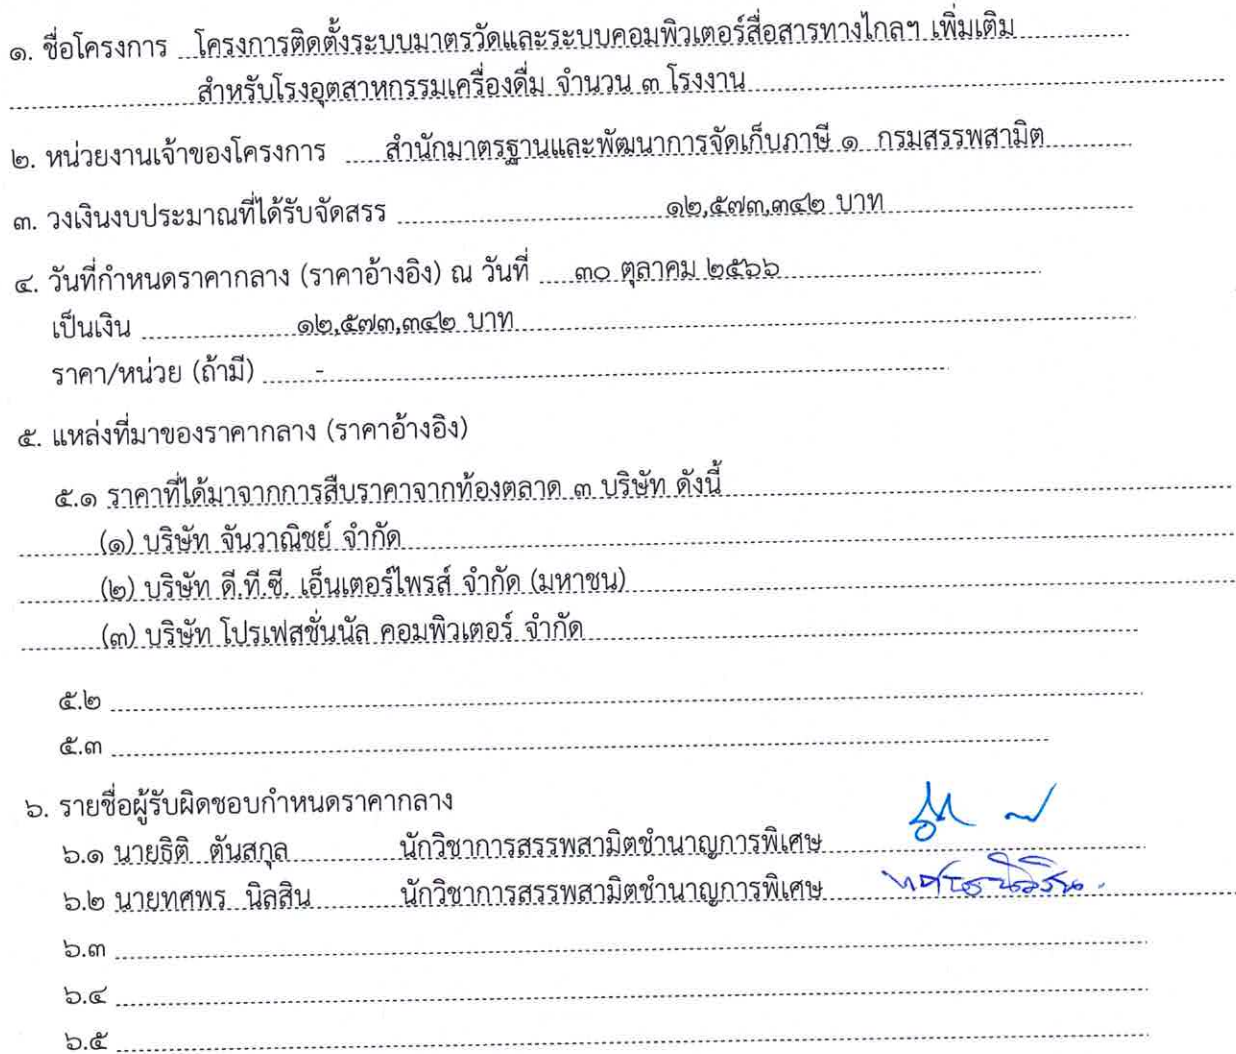 ๑. ชื่อโครงการ โครงการติดตั้งระบบมาตรวัดและระบบคอมพิวเตอร์สื่อสารทางไกลฯ เพิ่มเติม
สำหรับโรงอุตสาหกรรมเครื่องดื่ม จำนวน ๓ โรงงาน
๒. หน่วยงานเจ้าของโครงการ สำนักมาตรฐานและพัฒนาการจัดเก็บภาษี ๑ กรมสรรพสามิต
๓. วงเงินงบประมาณที่ได้รับจัดสรร ๑๒,๕๗๓,๓๔๒ บาท
๔. วันที่กำหนดราคากลาง (ราคาอ้างอิง) ณ วันที่ ๓๐ ตุลาคม ๒๕๖๖
เป็นเงิน ๑๒,๕๗๓,๓๔๒ บาท
ราคา/หน่วย (ถ้ามี) -
๕. แหล่งที่มาของราคากลาง (ราคาอ้างอิง)
๕.๑ ราคาที่ได้มาจากการสืบราคาจากท้องตลาด ๓ บริษัท ดังนี้
(๑) บริษัท จันวาณิชย์ จำกัด
(๒) บริษัท ดี.ที.ซี. เอ็นเตอร์ไพรส์ จำกัด (มหาชน)
(๓) บริษัท โปรเฟสชั่นนัล คอมพิวเตอร์ จำกัด
๕.๒
๕.๓
๖. รายชื่อผู้รับผิดชอบกำหนดราคากลาง
๖.๑ นายธิติ ตันสกุล นักวิชาการสรรพสามิตชำนาญการพิเศษ
๖.๒ นายทศพร นิลสิน นักวิชาการสรรพสามิตชำนาญการพิเศษ
๖.๓
๖.๔
๖.๕